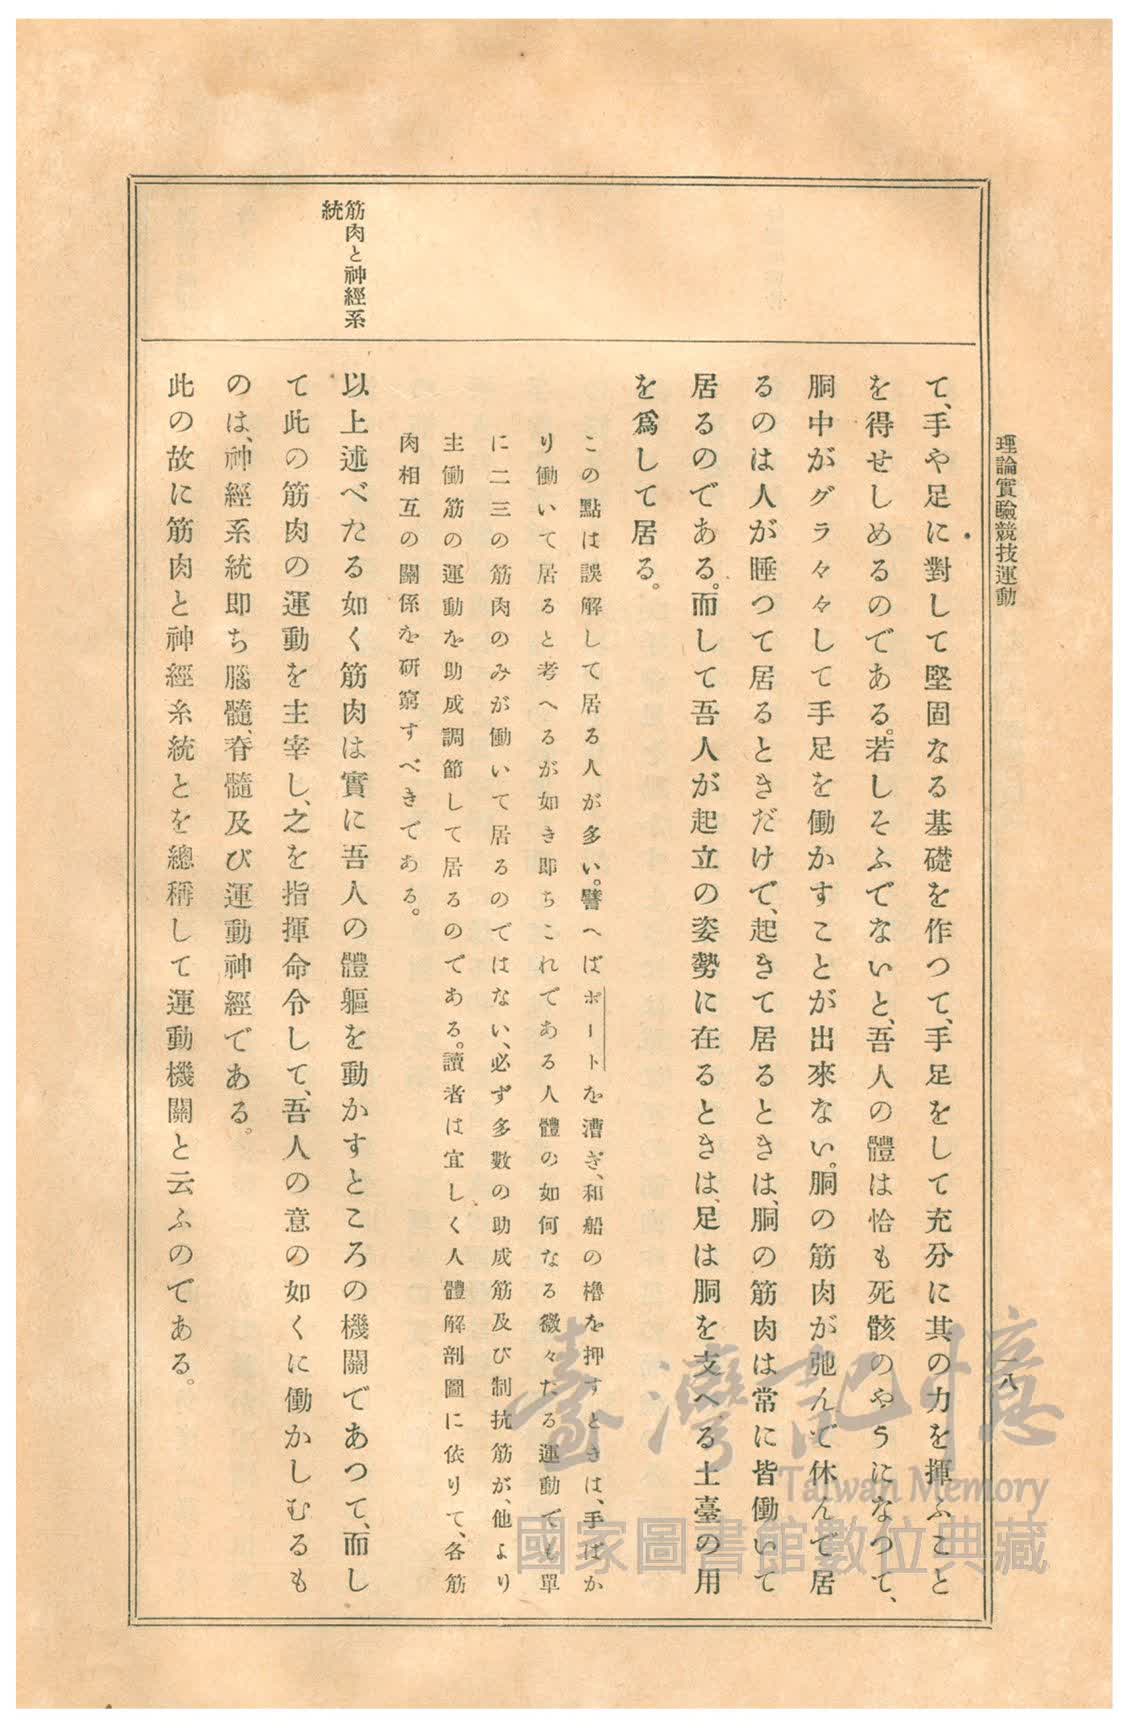 理論實驗競技運動
一八
て、手や足に對して堅固なる基礎を作つて、手足をして充分に其の力を揮ふこと
を得せしめるのである。若しそふでないと、吾人の體は恰も死骸のやうになつて、
胴中がグラ々々して手足を働かすことが出來ない。胴の筋肉が弛んで休んで居
るのは人が睡つて居るときだけで、起きて居るときは、胴の筋肉は常に皆働いて
居るのである。而して吾人が起立の姿勢に在るときは、足は胴を支へる土臺の用
を爲して居る。
この點は誤解して居る人が多い。譬へばボートを漕ぎ、和船の櫓を押すときは、手ばか
り働いて居ると考へるが如き即ちこれである人體の如何なる微々たる運動でも單
に二三の筋肉のみが働いて居るのではない、必ず多數の助成筋及び制抗筋が、他より
主働筋の運動を助成調節して居るのである。讀者は宜しく人體解剖圖に依りて、各筋
肉相互の關係を研窮すべきである。
筋肉と神經系
統
以上述べたる如く筋肉は實に吾人の體軀を動かすところの機關であつて、而し
て此の筋肉の運動を主宰し、之を指揮命令して、吾人の意の如くに働かしむるも
のは、神經系統即ち腦髓、脊髓及び運動神經である。
此の故に筋肉と神經系統とを總稱して運動機關と云ふのである。
臺灣記憶
Taiwan Memory
國家圖書館數位典藏